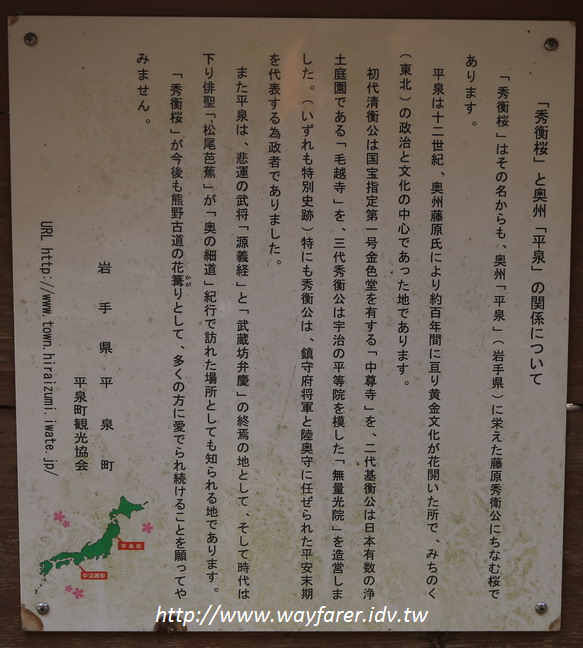 「秀衡桜」と奥州「平泉」の関係について
「秀衡桜」はその名からも、奥州「平泉」(岩手県)に栄えた藤原秀衡公にちなむ桜で
あります。
平泉は十二世紀、奥州藤原氏により約百年間に亘り黄金文化が花開いた所で、みちのく
(東北)の政治と文化の中心であった地であります。
初代清衡公は国宝指定第一号金色堂を有する「中尊寺」を、二代基衡公は日本有数の浄
土庭園である「毛越寺」を、三代秀衡公は宇治の平等院を模した「無量光院」を造営しま
した。(いずれも特別史跡)特にも秀衡公は、鎮守府将軍と陸奥守に任ぜられた平安末期
を代表する為政者でありました。
また平泉は、悲運の武将「源義経」と「武蔵坊弁慶」の終焉の地として、そして時代は
下り俳聖「松尾芭蕉」が「奥の細道」紀行で訪れた場所としても知られる地であります。
「秀衡桜」が今後も熊野古道の花篝りとして、多くの方に愛でられ続けることを願ってや
かが
みません。
岩手県平泉町
平泉町観光協会
URL http://www.town.hiraizumi.iwate.jp/
平泉町
中辺路町
http://www.wayfarer.idv.tw